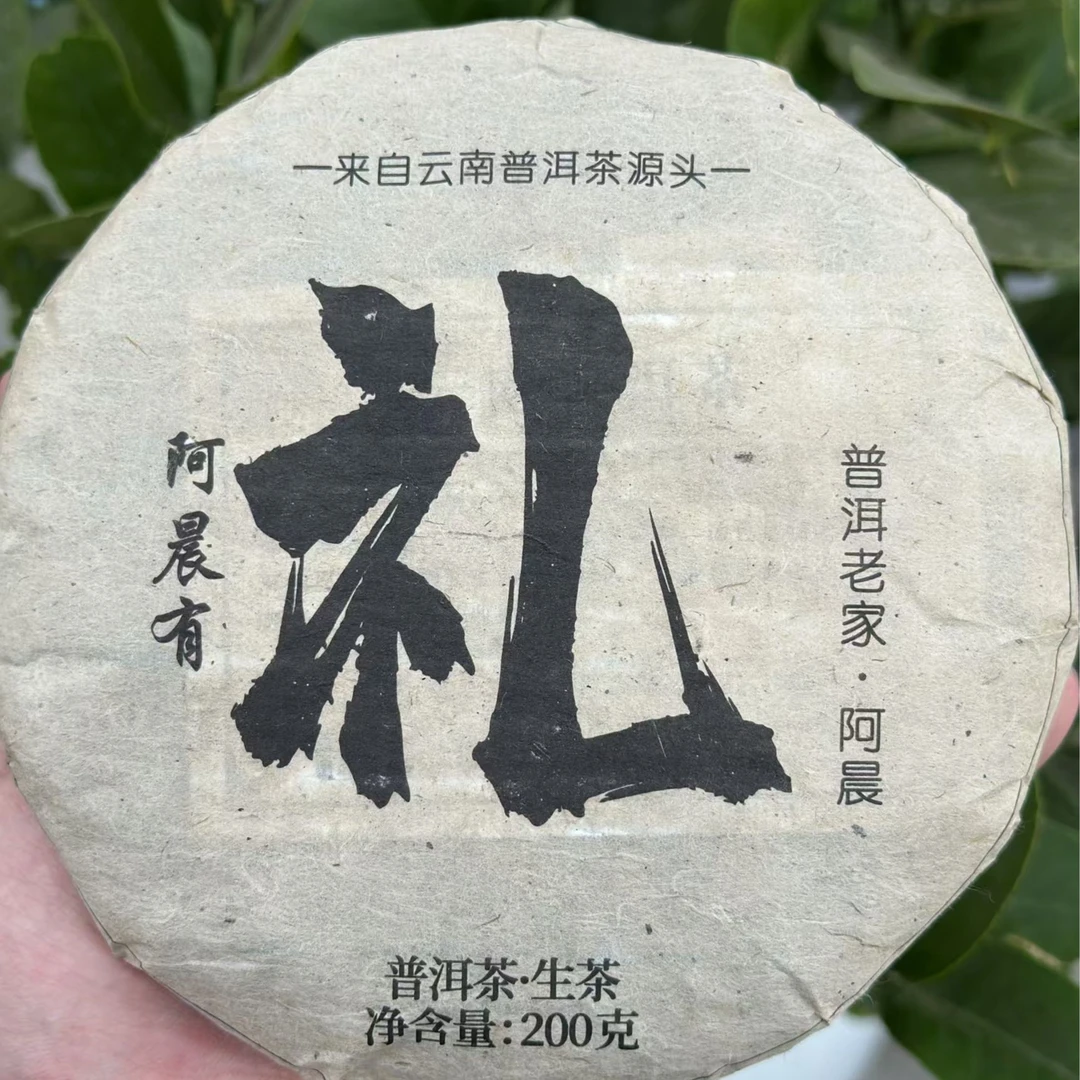 一来自云南普洱茶源头一
阿晨有
礼
普洱老家·阿晨
普洱茶·生茶
净含量:200克